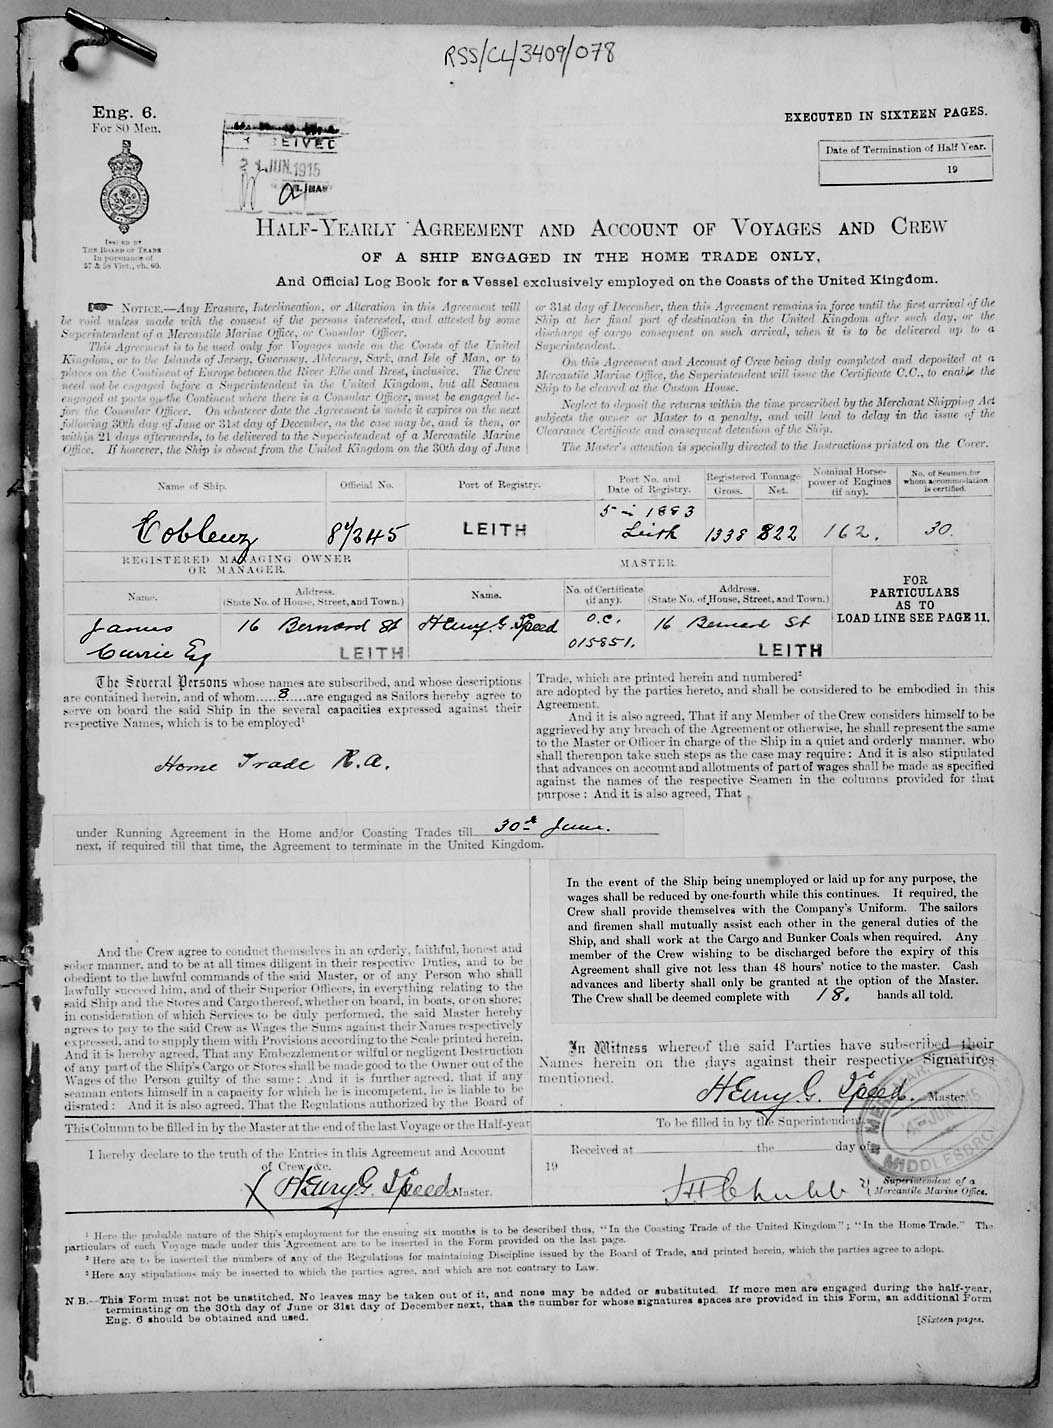 RSS/CL/3409/078
Eng. 6.
For 80 Men.
EXECUTED IN SIXTEEN PAGES.
Date of Termination of Half Year.
19
JUN.1915
ISSUED BY
THE BOARD OF TRADE
In pursuance of
57 & 58 Vict., ch. 60.
HALF-YEARLY AGREEMENT AND ACCOUNT OF VOYAGES AND CREW
OF A SHIP ENGAGED IN THE HOME TRADE ONLY,
And Official Log Book for a Vessel exclusively employed on the Coasts of the United Kingdom.
NOTICE.—Any Erasure, Interlineation, or Alteration in this Agreement will
be void unless made with the consent of the persons interested, and attested by some
Superintendent of a Mercantile Marine Office, or Consular Officer.
This Agreement is to be used only for Voyages made on the Coasts of the United
Kingdom, or to the Islands of Jersey, Guernsey, Alderney, Sark, and Isle of Man, or to
places on the Continent of Europe between the River Elbe and Brest, inclusive. The Crew
need not be engaged before a Superintendent in the United Kingdom, but all Seamen
engaged at ports on the Continent where there is a Consular Officer, must be engaged be-
fore the Consular Officer. On whatever date the Agreement is made it expires on the next
following 30th day of June or 31st day of December, as the case may be, and is then, or
within 21 days afterwards, to be delivered to the Superintendent of a Mercantile Marine
Office. If however, the Ship is absent from the United Kingdom on the 30th day of June
or 31st day of December, then this Agreement remains in force until the first arrival of the
Ship at her final port of destination in the United Kingdom after such day, or the
discharge of cargo consequent on such arrival, when it is to be delivered up to a
Superintendent.
On this Agreement and Account of Crew being duly completed and deposited at a
Mercantile Marine Office, the Superintendent will issue the Certificate C.C., to enable the
Ship to be cleared at the Custom House.
Neglect to deposit the returns within the time prescribed by the Merchant Shipping Act
subjects the owner or Master to a penalty, and will lead to delay in the issue of the
Clearance Certificate and consequent detention of the Ship.
The Master's attention is specially directed to the Instructions printed on the Cover.
Name of Ship. Official No. Port of Registry. Port No. and Date of Registry. Registered Tonnage Gross. Net. Nominal Horse-power of Engines (if any). No. of Seamen for whom accommodation is certified.
5 - 1883
Coblenz 87245 LEITH Leith 1338 822 162. 30.
REGISTERED MANAGING OWNER OR MANAGER.
MASTER.
FOR PARTICULARS AS TO LOAD LINE SEE PAGE 11.
Name. Address. (State No. of House, Street, and Town.) Name. No. of Certificate (if any). Address. (State No. of House, Street, and Town.)
James 16 Bernard St Henry G. Speed O.C. 16 Bernard St
Currie Esq LEITH 015851. LEITH
The Several Persons whose names are subscribed, and whose descriptions
are contained herein, and of whom 8 are engaged as Sailors hereby agree to
serve on board the said Ship in the several capacities expressed against their
respective Names, which is to be employed¹
Home Trade R.A.
Trade, which are printed herein and numbered²
are adopted by the parties hereto, and shall be considered to be embodied in this
Agreement.
And it is also agreed, That if any Member of the Crew considers himself to be
aggrieved by any breach of the Agreement or otherwise, he shall represent the same
to the Master or Officer in charge of the Ship in a quiet and orderly manner, who
shall thereupon take such steps as the case may require: And it is also stipulated
that advances on account and allotments of part of wages shall be made as specified
against the names of the respective Seamen in the columns provided for that
purpose: And it is also agreed, That
under Running Agreement in the Home and/or Coasting Trades till 30th June.
next, if required till that time, the Agreement to terminate in the United Kingdom.
In the event of the Ship being unemployed or laid up for any purpose, the
wages shall be reduced by one-fourth while this continues. If required, the
Crew shall provide themselves with the Company's Uniform. The sailors
and firemen shall mutually assist each other in the general duties of the
Ship, and shall work at the Cargo and Bunker Coals when required. Any
member of the Crew wishing to be discharged before the expiry of this
Agreement shall give not less than 48 hours' notice to the master. Cash
advances and liberty shall only be granted at the option of the Master.
The Crew shall be deemed complete with 18. hands all told.
And the Crew agree to conduct themselves in an orderly, faithful, honest and
sober manner, and to be at all times diligent in their respective Duties, and to be
obedient to the lawful commands of the said Master, or of any Person who shall
lawfully succeed him, and of their Superior Officers, in everything relating to the
said Ship and the Stores and Cargo thereof, whether on board, in boats, or on shore;
in consideration of which Services to be duly performed, the said Master hereby
agrees to pay to the said Crew as Wages the Sums against their Names respectively
expressed, and to supply them with Provisions according to the Scale printed herein.
And it is hereby agreed, That any Embezzlement or wilful or negligent Destruction
of any part of the Ship's Cargo or Stores shall be made good to the Owner out of the
Wages of the Person guilty of the same: And it is further agreed, that if any
seaman enters himself in a capacity for which he is incompetent, he is liable to be
disrated: And it is also agreed, That the Regulations authorized by the Board of
In Witness whereof the said Parties have subscribed their
Names herein on the days against their respective Signatures
mentioned.
Henry G. Speed. Master.
MIDDLESBRO
This Column to be filled in by the Master at the end of the last Voyage or the Half-year
I hereby declare to the truth of the Entries in this Agreement and Account
of Crew &c.
X Henry G. Speed Master.
To be filled in by the Superintendent.
Received at the day of
19
Superintendent of a
Mercantile Marine Office.
¹ Here the probable nature of the Ship's employment for the ensuing six months is to be described thus, "In the Coasting Trade of the United Kingdom"; "In the Home Trade." The
particulars of each Voyage made under this Agreement are to be inserted in the Form provided on the last page.
² Here are to be inserted the numbers of any of the Regulations for maintaining Discipline issued by the Board of Trade, and printed herein, which the parties agree to adopt.
³ Here any stipulations may be inserted to which the parties agree, and which are not contrary to Law.
N.B.—This Form must not be unstitched. No leaves may be taken out of it, and none may be added or substituted. If more men are engaged during the half-year,
terminating on the 30th day of June or 31st day of December next, than the number for whose signatures spaces are provided in this Form, an additional Form
Eng. 6 should be obtained and used.
[Sixteen pages.